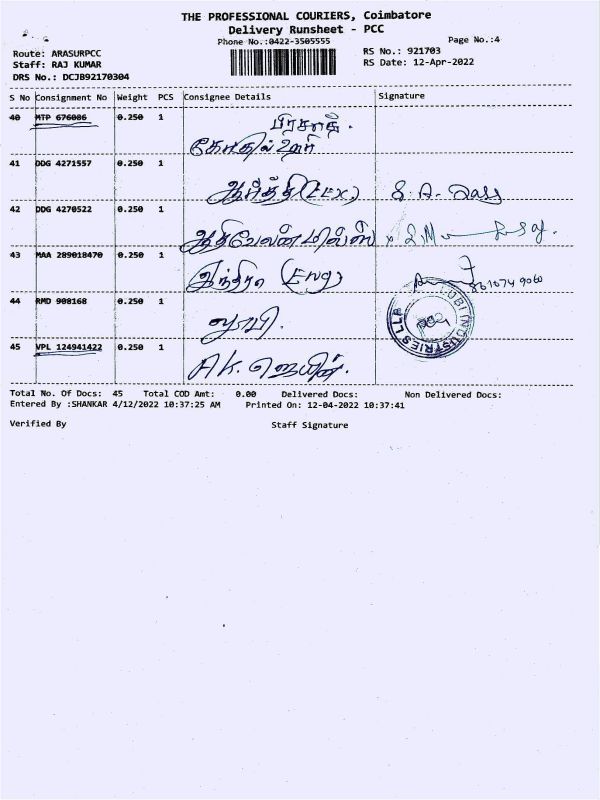 THE PROFESSIONAL COURIERS, Coimbatore
Delivery Runsheet - PCC
Phone No.:0422-3505555
Page No.:4
Route: ARASURPCC
Staff: RAJ KUMAR
DRS No.: DCJB92170304
RS No.: 921703
RS Date: 12-Apr-2022
S No Consignment No Weight PCS Consignee Details Signature
40 MTP 676086 0.250 1 பிரசாத்.
கோவில் ஊர்
41 DDG 4271557 0.250 1
42 DDG 4270522 0.250 1
43 MAA 289018470 0.250 1 இந்திரா (Eng)
44 RMD 908168 0.250 1
45 VPL 124941422 0.250 1 AK. ஜெயின்.
Total No. Of Docs: 45 Total COD Amt: 0.00 Delivered Docs: Non Delivered Docs:
Entered By :SHANKAR 4/12/2022 10:37:25 AM Printed On: 12-04-2022 10:37:41
Verified By Staff Signature